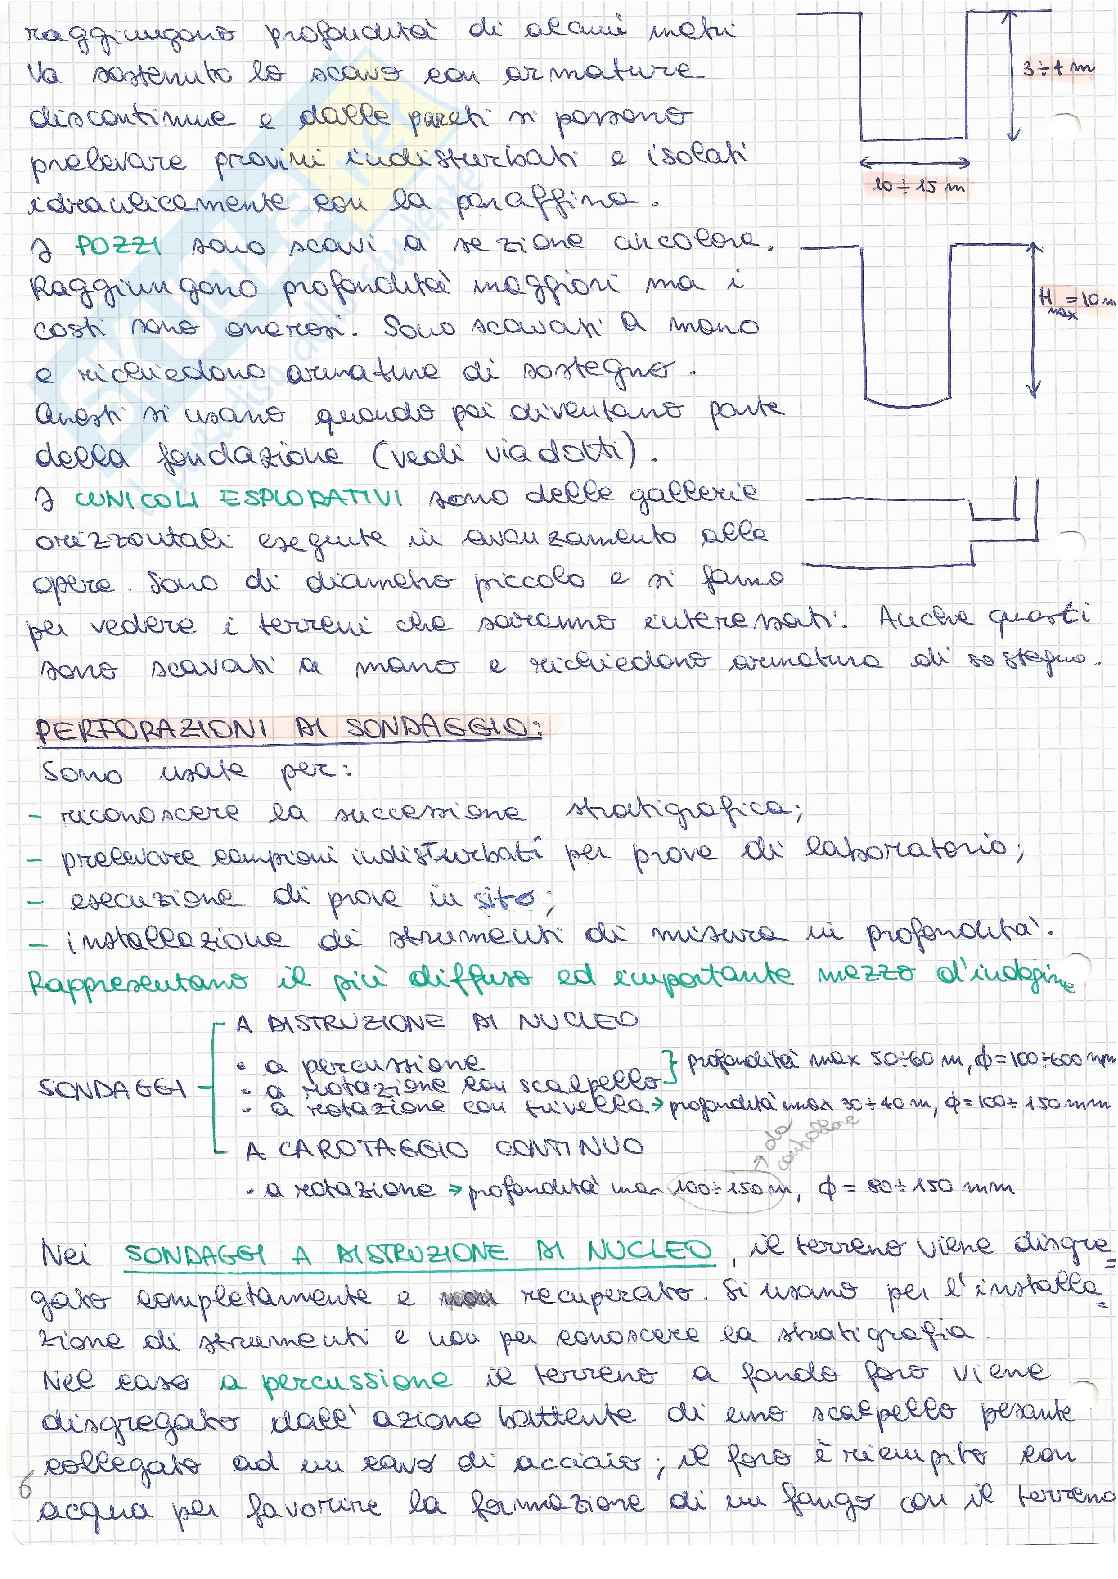 raggiungono profondità di alcuni metri
Va sostenuto lo scavo con armature
discontinue e dalle pareti si possono
prelevare provini indisturbati e isolati
idraulicamente con la paraffina.
3÷4 m
10÷15 m
I POZZI sono scavi a sezione circolare.
Raggiungono profondità maggiori ma i
costi sono onerosi. Sono scavati a mano
e richiedono armature di sostegno.
Questi si usano quando poi diventano parte
della fondazione (vedi viadotti).
H max = 10 m
I CUNICOLI ESPLORATIVI sono delle gallerie
orizzontali eseguite in avanzamento alle
opere. Sono di diametro piccolo e si fanno
per vedere i terreni che saranno interessati. Anche questi
sono scavati a mano e richiedono armatura di sostegno.
PERFORAZIONI DI SONDAGGIO:
Sono usate per:
- riconoscere la successione stratigrafica;
- prelevare campioni indisturbati per prove di laboratorio;
- esecuzione di prove in sito;
- installazione di strumenti di misura in profondità.
Rappresentano il più diffuso ed importante mezzo d'indagine
SONDAGGI
A DISTRUZIONE DI NUCLEO
• a percussione
• a rotazione con scalpello
} profondità max 50÷60 m, ϕ = 100÷600 mm
• a rotazione con trivella → profondità max 30÷40 m, ϕ = 100÷150 mm
A CAROTAGGIO CONTINUO
• a rotazione → profondità max 100÷150 m, ϕ = 80÷150 mm
→ da controllare
Nei SONDAGGI A DISTRUZIONE DI NUCLEO, il terreno viene disgre=
gato completamente e recuperato. Si usano per l'installa=
zione di strumenti e non per conoscere la stratigrafia.
Nel caso a percussione il terreno a fondo foro viene
disgregato dall'azione battente di uno scalpello pesante
collegato ad un cavo di acciaio; il foro è riempito con
acqua per favorire la formazione di un fango con il terreno
6